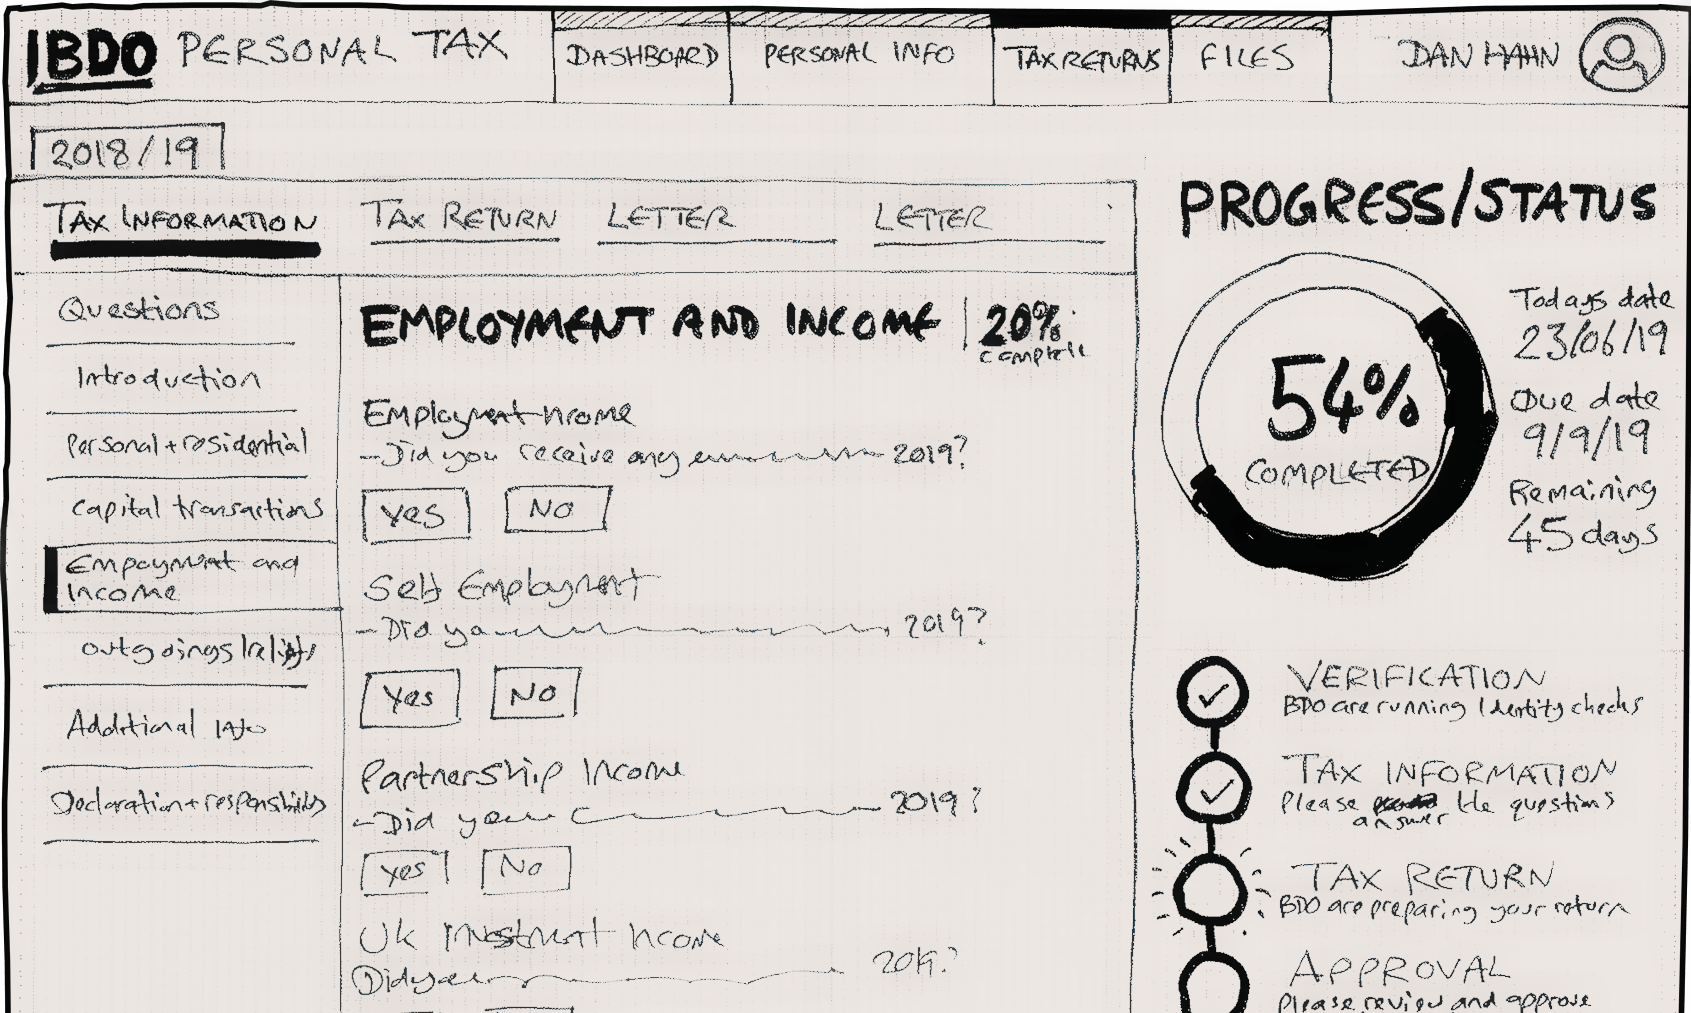 IBDO PERSONAL TAX
DASHBOARD
PERSONAL INFO
TAX RETURNS
FILES
DAN HAHN
2018/19
TAX INFORMATION
TAX RETURN
LETTER
LETTER
Questions
Introduction
Personal + residential
Capital transactions
Empoyment and
Income
Outgoings/
Additional Info
Declaration + responsibility
EMPLOYMENT AND INCOME
20%
complete
Employment Income
- Did you receive any 2019?
Yes
No
Self Employment
- Did you 2019?
Yes
No
Partnership Income
- Did you 2019?
Yes
No
UK Investment Income
Did you 2019?
PROGRESS/STATUS
54%
COMPLETED
Todays date
23/06/19
Due date
9/9/19
Remaining
45 days
VERIFICATION
BDO are running Identity checks
TAX INFORMATION
Please answer the questions
TAX RETURN
BDO are preparing your return
APPROVAL
Please review and approve